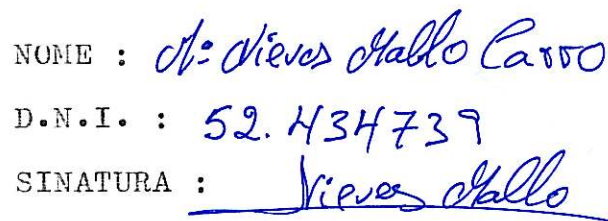 NOME : Mª Nieves Mallo Carro
D.N.I. : 52.434739
SINATURA : Nieves Mallo